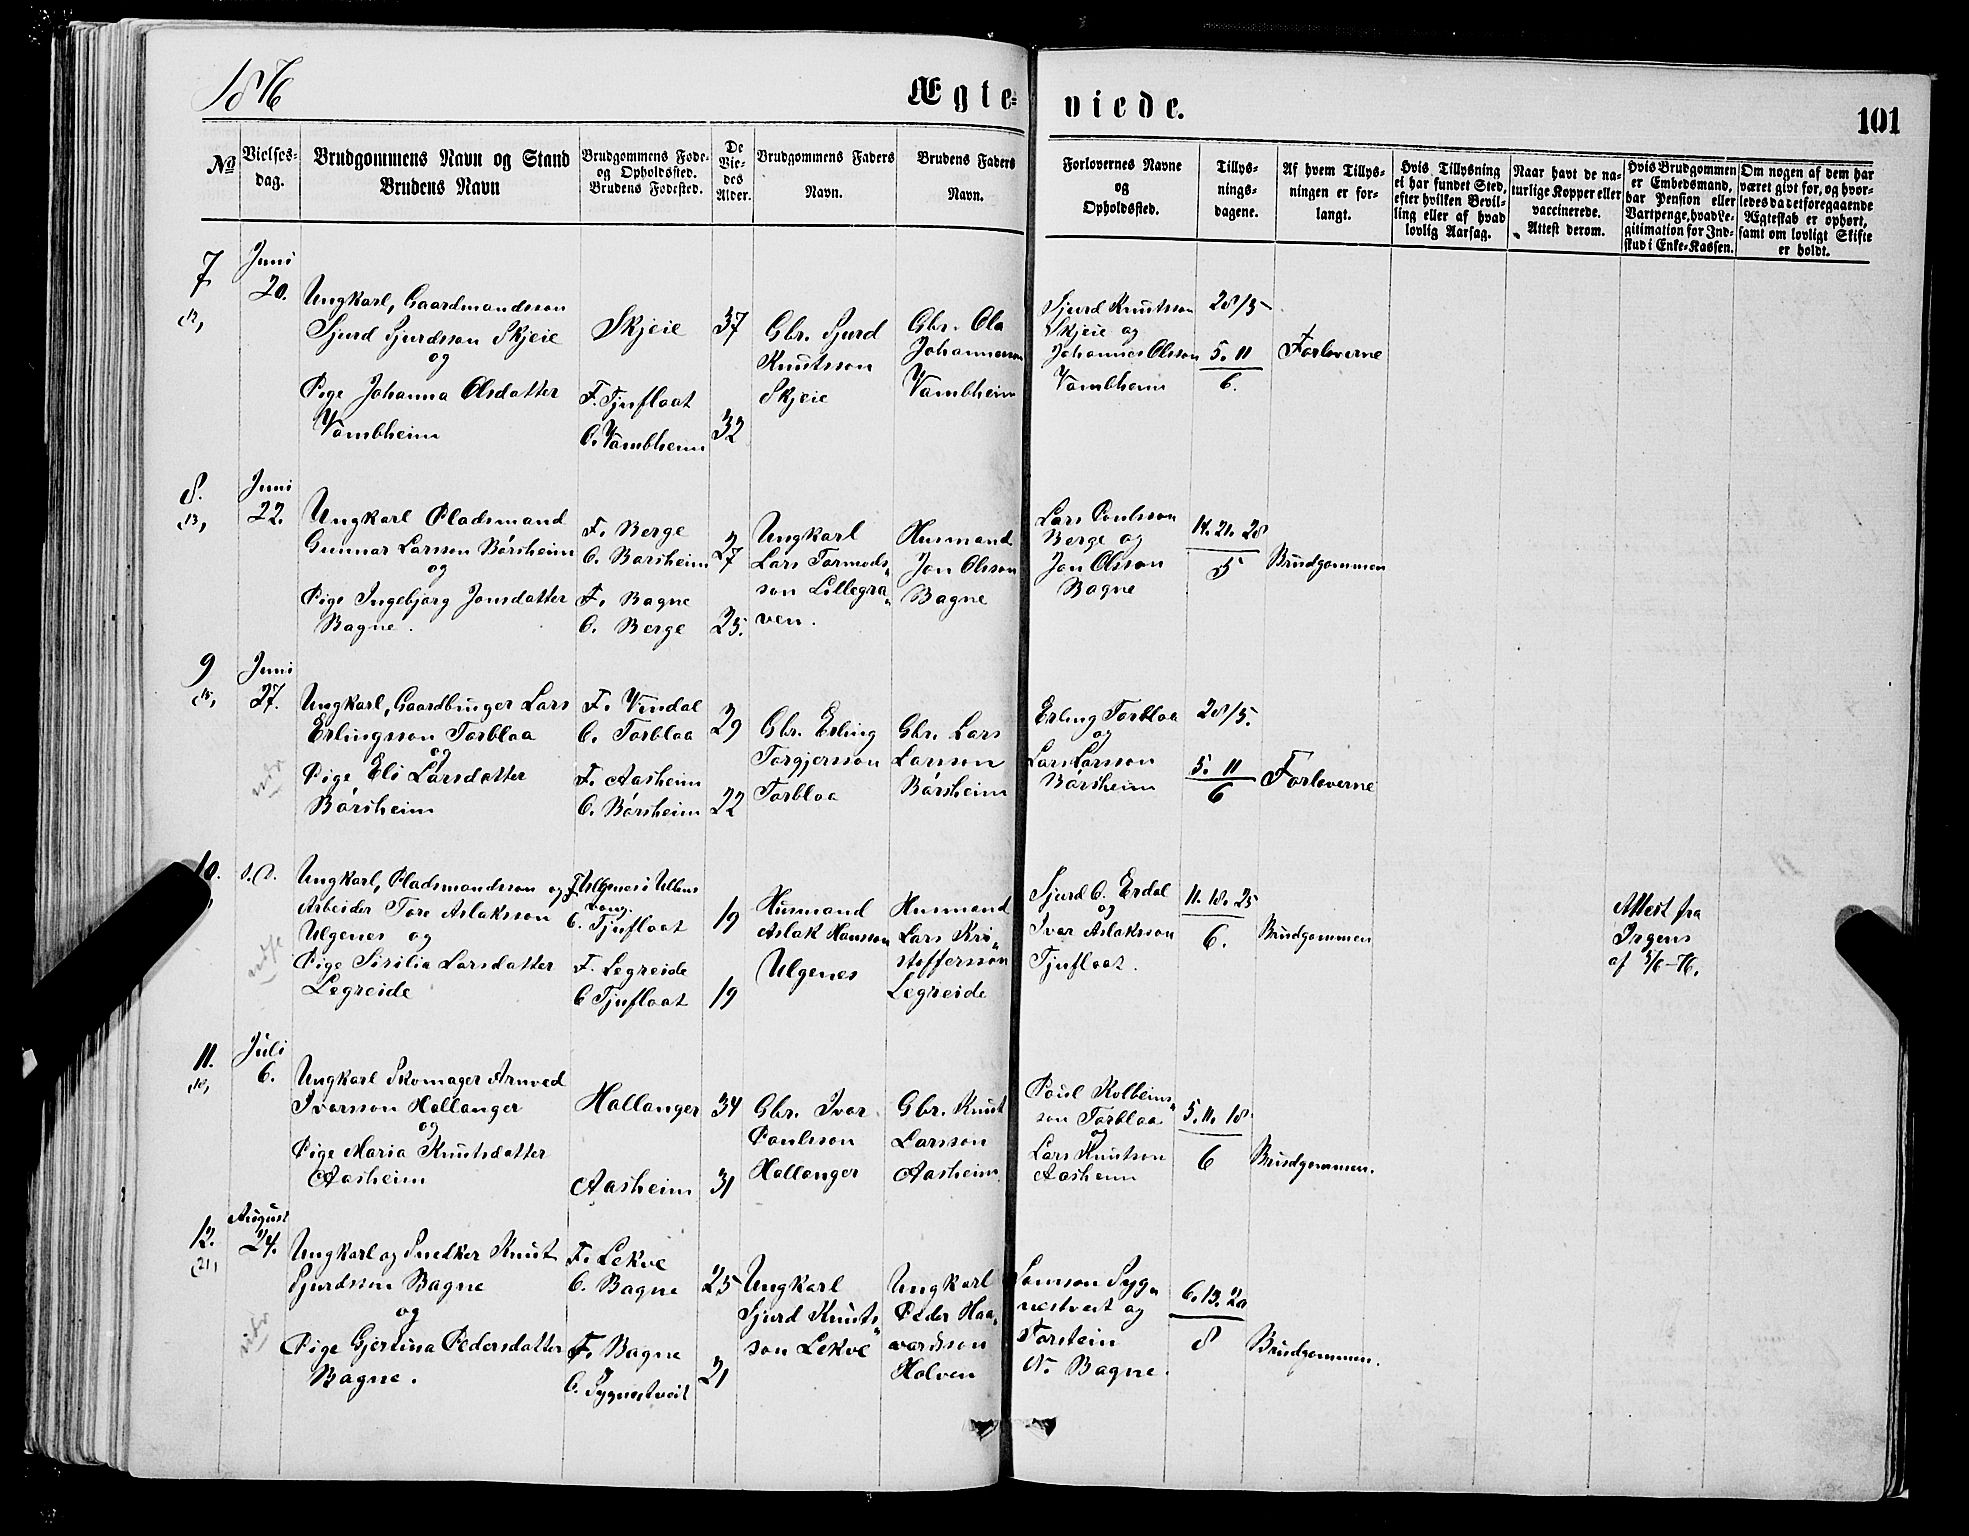 1876
Ægte-
viede.
101
No
Vielses-
dag.
Brudgommens Navn og Stand
Brudens Navn
Brudgommens Føde-
og Opholdssted.
Brudens Fødested.
De
Vie-
des
Alder.
Brudgommens Faders
Navn.
Brudens Faders
Navn.
Forlovernes Navne
og
Opholdssted.
Tillys-
nings-
dagene.
Af hvem Tillys-
ningen er for-
langt.
Hvis Tillysning
ei har fundet Sted,
efter hvilken Bevil-
ling eller af hvad
lovlig Aarsag.
Naar havt de na-
turlige Kopper eller
vaccinerede.
Attest derom.
Hvis Brudgommen
er Embedsmand,
har Pension eller
Vartpenge, hvad Le-
gitimation for Ind-
skud i Enke-Kassen.
Om nogen af dem har
været givt før, og hvor-
ledes da det foregaaende
Ægteskab er ophørt,
samt om lovligt Skifte
er holdt.
7
Juni
20.
Ungkarl, Gaardmandsson
Sjurd Sjurdsson Skjeie
og
Pige Johanna Olsdatter
Vambheim
Skjeie
F. Tjuflaat
O. Vambheim
37
32
Gbr. Sjurd
Knutsson
Skjeie
Gbr. Ola
Johannesson
Vambheim
Sjurd Knutsson
Skjeie og
Johannes Olsson
Vambheim
28/5
5. 11
6.
Forloverne
8.
(13)
Juni
22.
Ungkarl Pladsmand
Gunnar Larsson Børsheim
og
Pige Ingebjørg Jonsdatter
Bagne.
F. Berge
O. Børsheim
F. Bagne
O. Berge
27
25.
Ungkarl
Lars Tormods-
son Lillegra-
ven.
Husmand
Jon Olsson
Bagne
Lars Poulsson
Berge og
Jon Olsson
Bagne
14. 21. 28
5
Brudgommen
9
Juni
27.
Ungkarl, Gaardbruger Lars
Erlingsson Torblaa
og
Pige Eli Larsdatter
Børsheim
F. Vindal
O. Torblaa
F. Aasheim
O. Børsheim
29
22
Gbr. Erling
Torgjersson
Torblaa
Gbr. Lars
Larsson
Børsheim
Erling Torblaa
og
Lars Larsson
Børsheim
28/5.
5. 11
6
Forloverne
10.
s. D.
Ungkarl, Pladsmandsson og
Arbeider Tore Aslaksson
Ulgenes og
Pige Sirilia Larsdatter
Legreide
F. Ulgenes i Ullens
vang.
O. Tjuflaat
F. Legreide
O Tjuflaat
19
19
Husmand
Aslak Hansson
Ulgenes
Husmand
Lars Kri-
stoffersson
Legreide
Sjurd O. Erdal
og
Ivar Aslaksson
Tjuflaat.
11. 18. 25
6.
Brudgommen
Attest fra
Irgens
af 5/6-76.
11.
Juli
6.
Ungkarl Skomager Arnved
Ivarsson Hallanger
og
Pige Maria Knutsdatter
Aasheim
Hallanger
Aasheim
34
31
Gbr. Ivar
Paulsson
Hallanger
Gbr. Knut
Larsson
Aasheim
Poul Kolbeins-
son Torblaa
og
Lars Knutson
Aasheim
5. 11. 18
6
Brudgommen.
12.
(21)
August
24.
Ungkarl og Snedker Knut
Sjurdsson Bagne
og
Pige Gjertina Pedersdatter
Bagne.
F. Lekve
O. Bagne
F. Bagne
O. Sygnestveit
25
21
Ungkarl
Sjurd Knuts-
son Lekve
Ungkarl
Peder Haa-
vardsson
Holven
Samson Syg-
nestveit og
Torstein
N. Bagne.
6. 13. 20
8
Brudgommen.